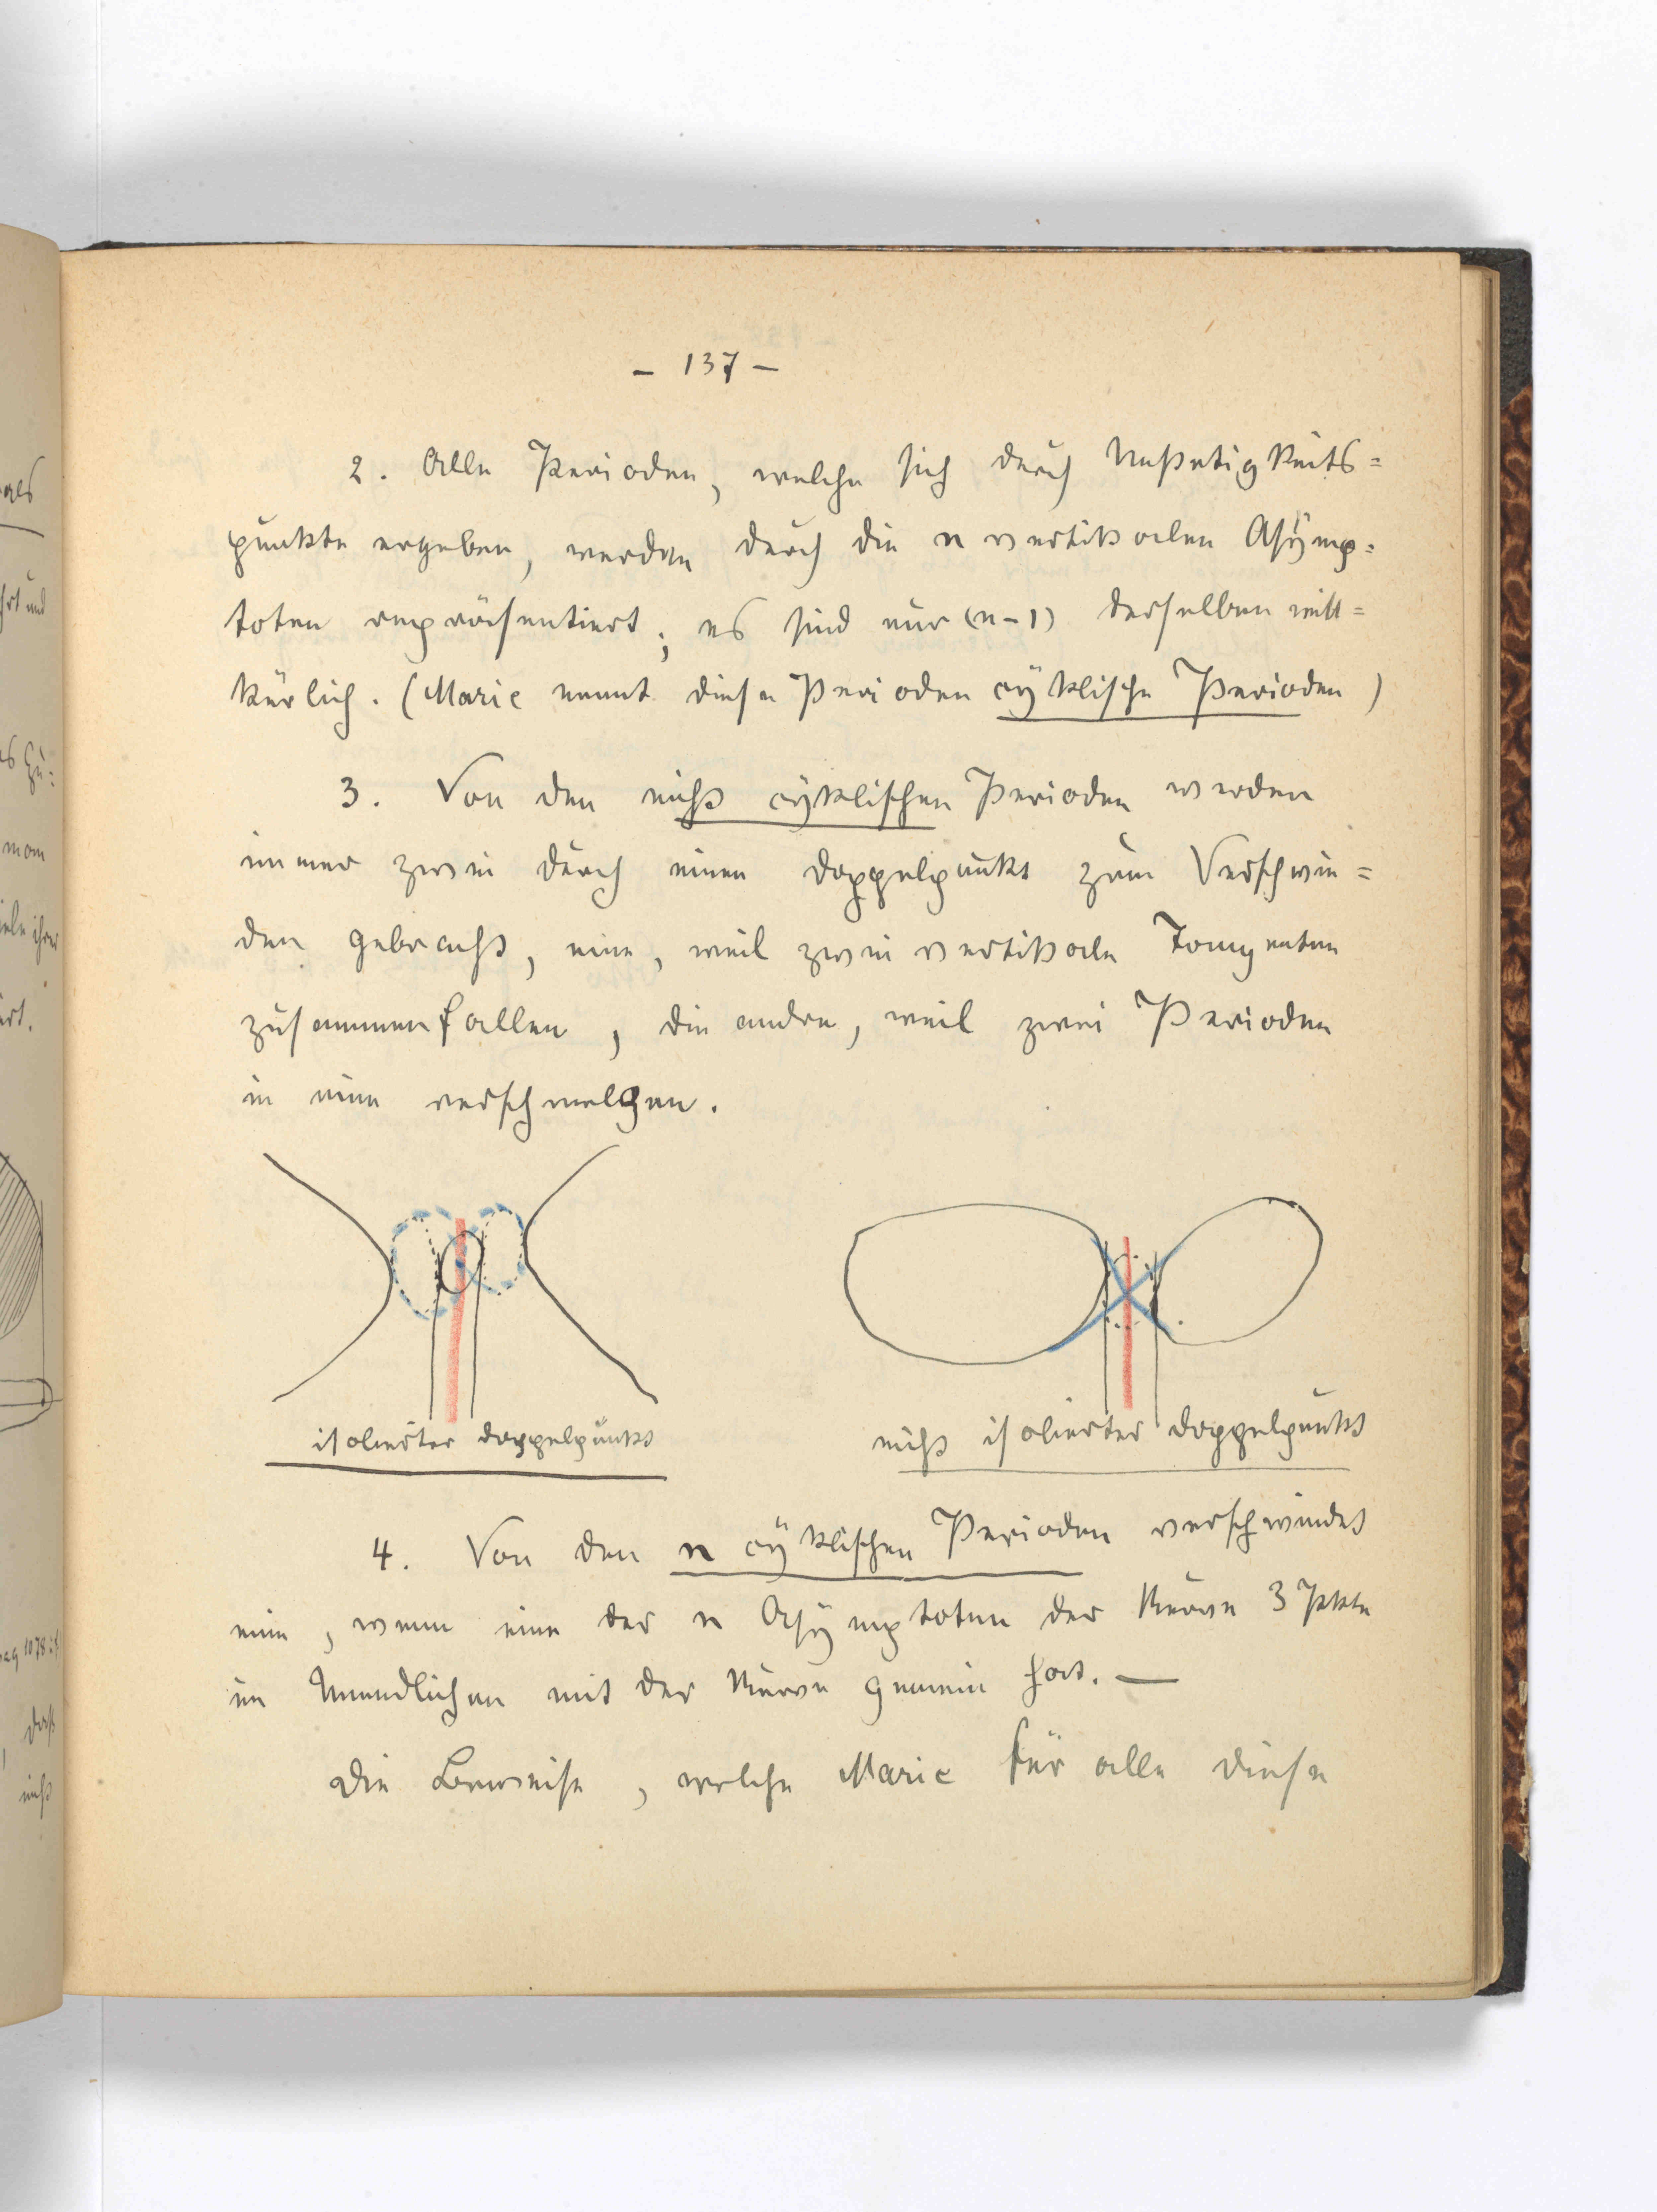 - 137 -
2. Alle Perioden, welche sich durch Unstetigkeits=
punkte ergeben, werden durch die n vertikalen Asymp=
toten repräsentiert; es sind nur (n-1) derselben will=
kürlich. (Marie nennt diese Perioden cyklische Perioden)
3. Von den nicht cyklischen Perioden werden
immer zwei durch einen Doppelpunkt zum Verschwin=
den gebracht, eine, weil zwei vertikale Tangenten
zusammenfallen, die andre, weil zwei Perioden
in eine verschmelzen.
isolierter Doppelpunkt
nicht isolierter Doppelpunkt
4. Von den n cyklischen Perioden verschwindet
eine, wenn eine der n Asymptoten der Kurve 3 Pkte
im Unendlichen mit der Kurve gemein hat. —
Die Beweise, welche Marie für alle diese